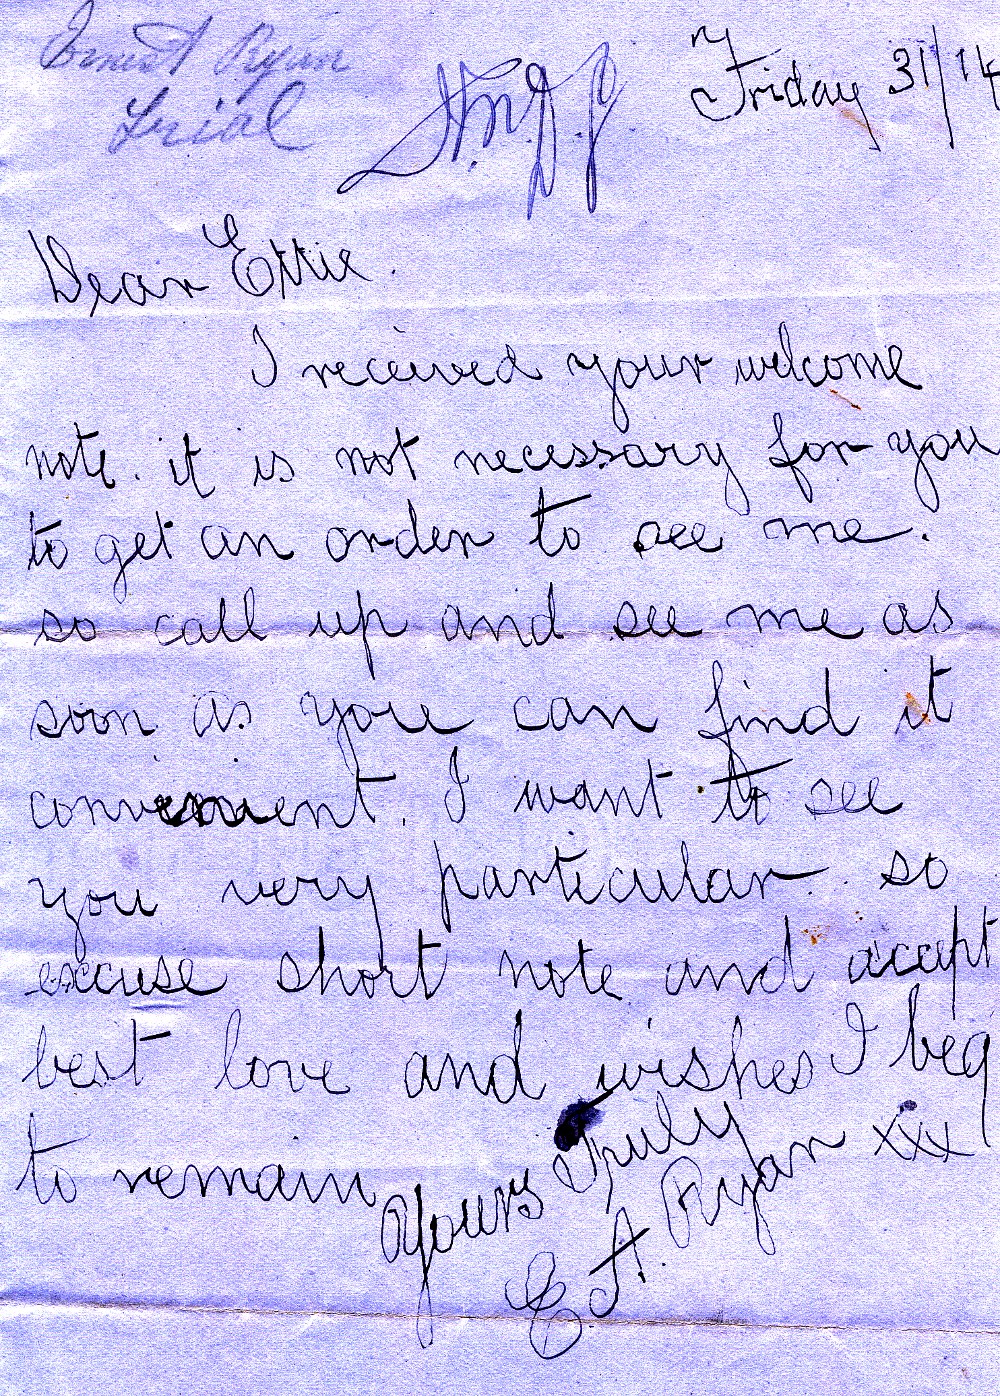 Ernest Ryan
Trial
Friday 31/14
Dear Ettie.
I received your welcome
note. it is not necessary for you
to get an order to see me.
so call up and see me as
soon as you can find it
convenient. I want to see
you very particular. so
excuse short note and accept
best love and wishes I beg
to remain
Yours Truly
E A. Ryan xxx